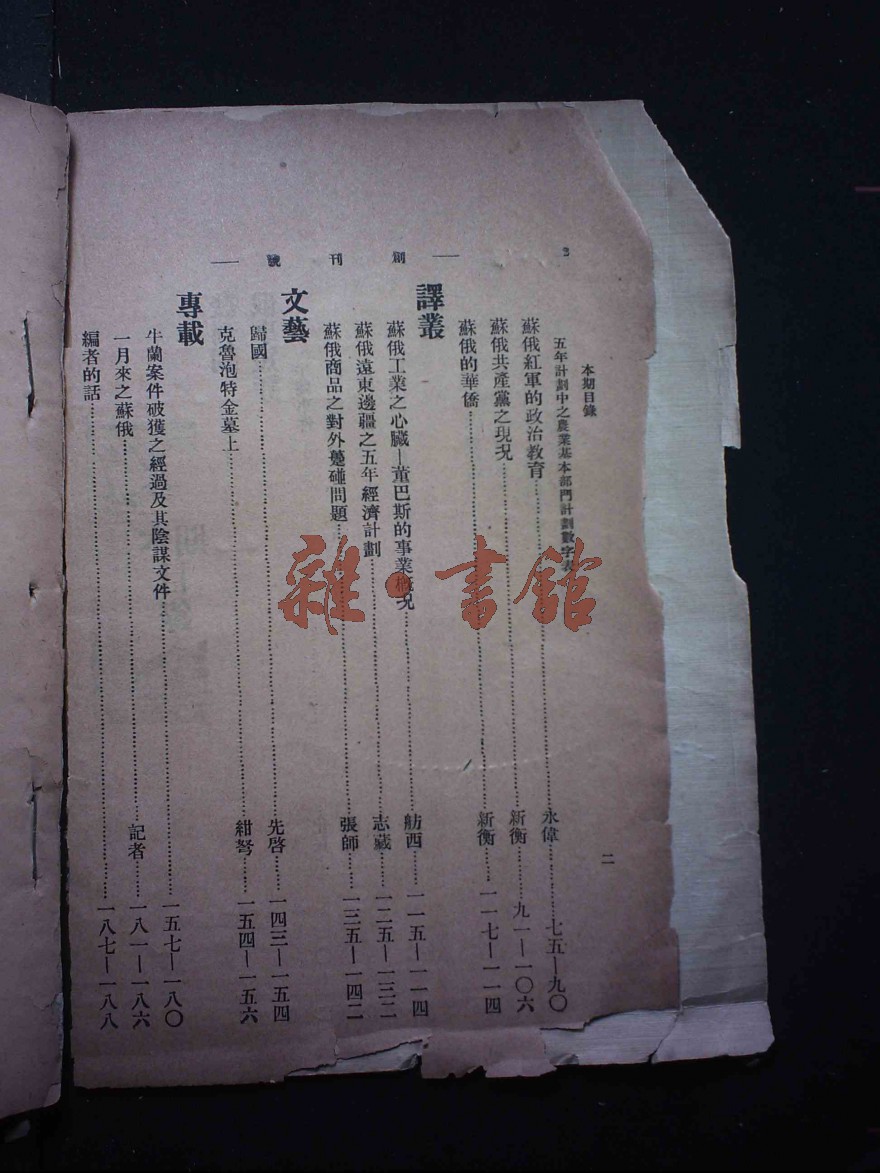 本期目錄
二
五年計劃中之農業基本部門計劃數字表
蘇俄紅軍的政治教育……永偉……七五—九〇
蘇俄共產黨之現況……新衡……九一—一〇六
蘇俄的華僑……新衡……一一七—一一四
譯叢
蘇俄工業之心臟—董巴斯的事業概況……舫西……一一五—一一四
蘇俄遠東邊疆之五年經濟計劃……志藏……一二五—一三二
蘇俄商品之對外躉碰問題……張師……一三五—一四二
文藝
歸國……先啓……一四三—一五四
克魯泡特金墓上……紺弩……一五四—一五六
專載
牛蘭案件破獲之經過及其陰謀文件……一五七—一八〇
一月來之蘇俄……記者……一八一—一八六
編者的話……一八七—一八八
—創刊號—
雜·書館